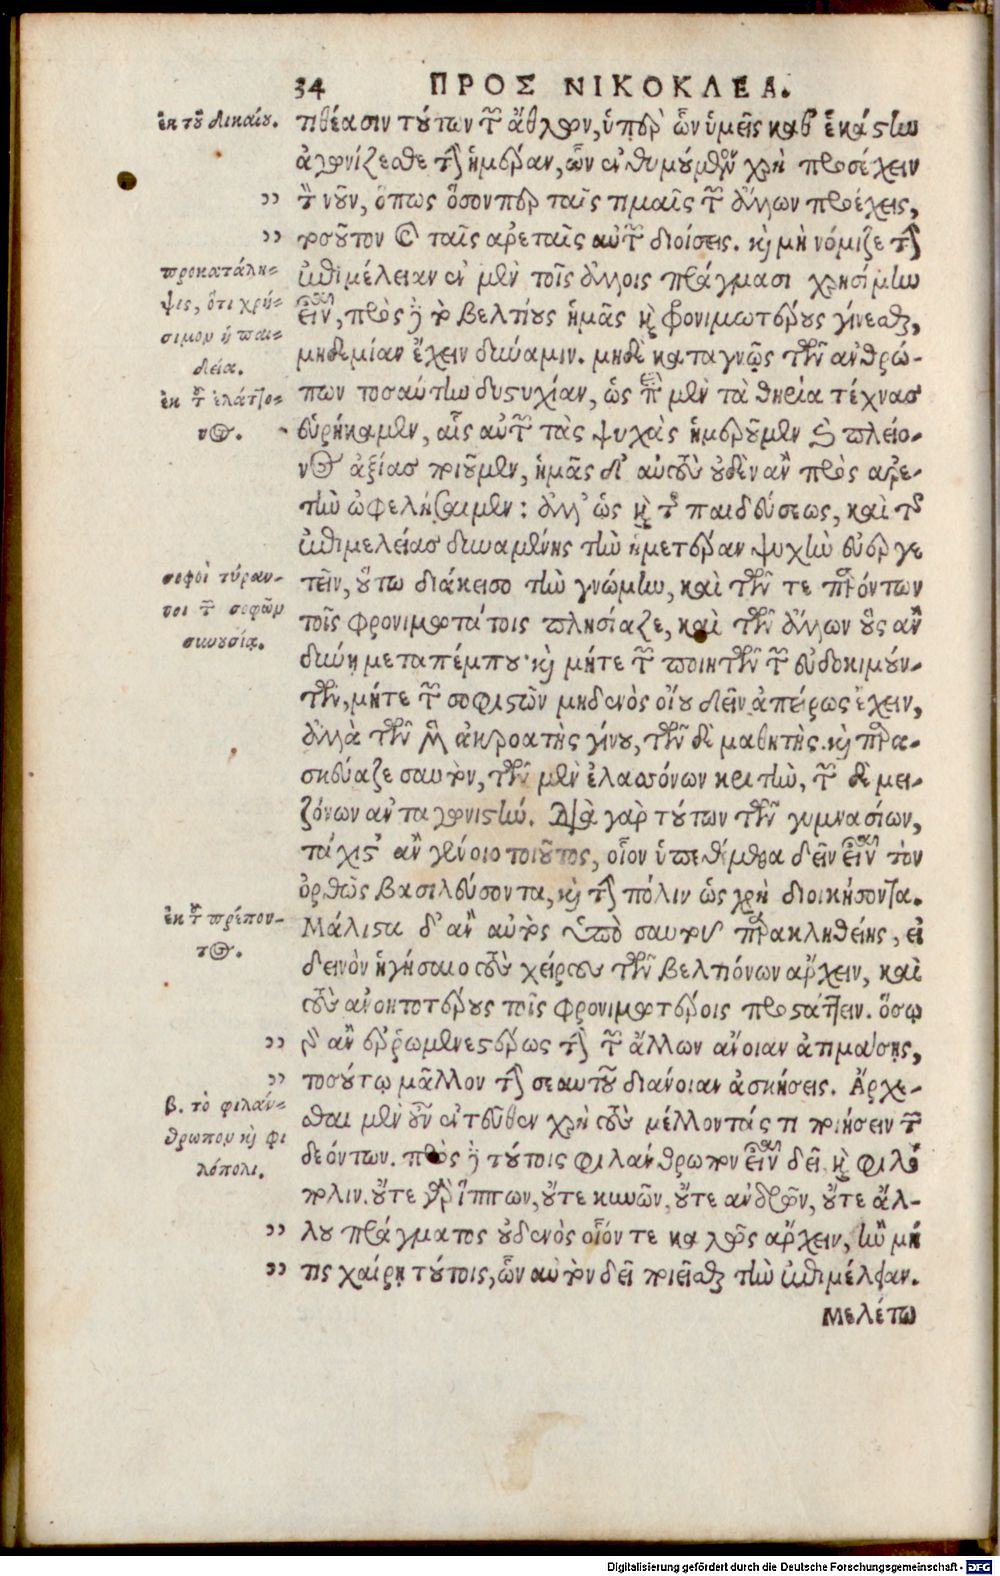 34 ΠΡΟΣ ΝΙΚΟΚΛΕΑ.
ἐκ τοῦ δικαίου.
προκατάλη-
ψις, ὅτι χρή-
σιμον ἡ παι-
δεία.
ἐκ τοῦ ἐλάττο-
νος.
σοφοὶ τύραν-
νοι τῶν σοφῶν
συνουσίᾳ.
ἐκ τοῦ πρέπον-
τος.
β. τὸ φιλάν-
θρωπον καὶ φι
λόπολι.
τιθέασιν τούτων τῶν ἄθλων, ὑπὲρ ὧν ὑμεῖς καθ' ἑκάστην
ἀγωνίζεσθε τὴν ἡμέραν, ὧν ἐνθυμούμενον χρὴ προσέχειν
,, τὸν νοῦν, ὅπως ὅσονπερ ταῖς τιμαῖς τῶν ἄλλων προέχεις,
,, τοσοῦτον καὶ ταῖς ἀρεταῖς αὐτῶν διοίσεις. καὶ μὴ νόμιζε τὴν
ἐπιμέλειαν ἐν μὲν τοῖς ἄλλοις πράγμασι χρησίμην
εἶναι, πρὸς δὲ τὸ βελτίους ἡμᾶς καὶ φρονιμωτέρους γίνεσθαι,
μηδεμίαν ἔχειν δύναμιν. μηδὲ καταγνῷς τῶν ἀνθρώ-
πων τοσαύτην δυστυχίαν, ὡς περὶ μὲν τὰ θηρία τέχνας
εὑρήκαμεν, αἷς αὐτῶν τὰς ψυχὰς ἡμεροῦμεν καὶ πλείο-
νος ἀξίας ποιοῦμεν, ἡμᾶς δ' αὐτοὺς οὐδὲν ἂν πρὸς ἀρε-
τὴν ὠφελήσαιμεν: ἀλλ' ὡς καὶ τῆς παιδεύσεως, καὶ τῆς
ἐπιμελείας δυναμένης τὴν ἡμετέραν ψυχὴν εὐεργε
τεῖν, οὕτω διάκεισο τὴν γνώμην, καὶ τῶν τε παρόντων
τοῖς φρονιμωτάτοις πλησίαζε, καὶ τῶν ἄλλων οὓς ἂν
δύνῃ μεταπέμπου· καὶ μήτε τῶν ποιητῶν τῶν εὐδοκιμούν-
των, μήτε τῶν σοφιστῶν μηδενὸς οἴου δεῖν ἀπείρως ἔχειν,
ἀλλὰ τῶν μὲν ἀκροατὴς γίνου, τῶν δὲ μαθητής. καὶ παρα-
σκεύαζε σαυτὸν, τῶν μὲν ἐλασσόνων κριτὴν, τῶν δὲ μει-
ζόνων ἀνταγωνιστήν. Διὰ γὰρ τούτων τῶν γυμνασίων,
τάχιστ' ἂν γένοιο τοιοῦτος, οἷον ὑπεθέμεθα δεῖν εἶναι τὸν
ὀρθῶς βασιλεύσοντα, καὶ τὴν πόλιν ὡς χρὴ διοικήσοντα.
Μάλιστα δ' ἂν αὐτὸς ὑπὸ σαυτοῦ παρακληθείης, εἰ
δεινὸν ἡγήσαιο τοὺς χείρους τῶν βελτιόνων ἄρχειν, καὶ
τοὺς ἀνοητοτέρους τοῖς φρονιμωτέροις προστάττειν. ὅσῳ
,, γὰρ ἂν ἐρρωμενεστέρως τὴν τῶν ἄλλων ἄνοιαν ἀτιμάσῃς,
,, τοσούτῳ μᾶλλον τὴν σεαυτοῦ διάνοιαν ἀσκήσεις. Ἄρχε-
σθαι μὲν οὖν ἐντεῦθεν χρὴ τοὺς μέλλοντάς τι ποιήσειν τῶν
δεόντων. πρὸς δὲ τούτοις φιλάνθρωπον εἶναι δεῖ καὶ φιλό
πολιν. οὔτε γὰρ ἵππων, οὔτε κυνῶν, οὔτε ἀνδρῶν, οὔτε ἄλ-
,, λου πράγματος οὐδενὸς οἷόν τε καλῶς ἄρχειν, ἢν μή
,, τις χαίρῃ τούτοις, ὧν αὐτὸν δεῖ ποιεῖσθαι τὴν ἐπιμέλειαν.
Μελέτω
Digitalisierung gefördert durch die Deutsche Forschungsgemeinschaft - DFG